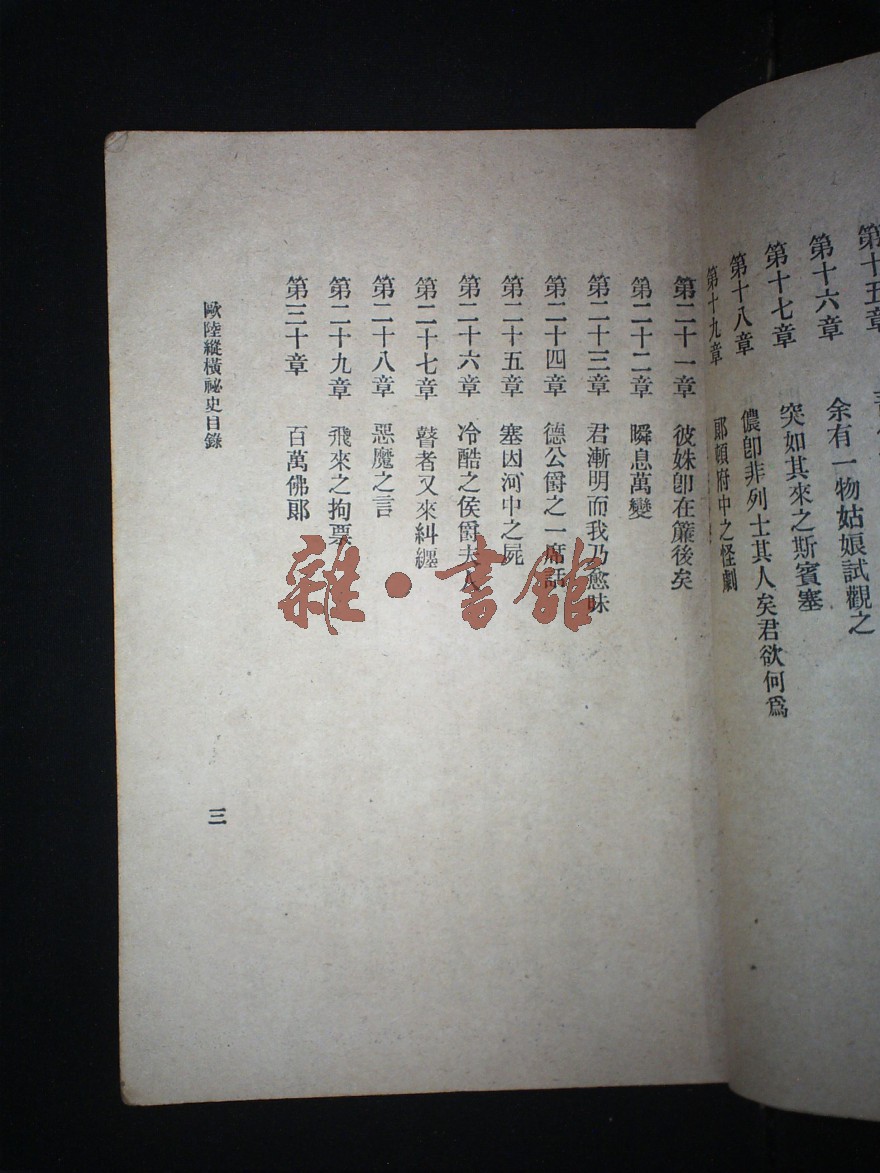 第十五章
第十六章 余有一物姑娘試觀之
第十七章 突如其來之斯賓塞
第十八章 儂卽非列士其人矣君欲何爲
第十九章 郞頓府中之怪劇
第二十一章 彼姝卽在簾後矣
第二十二章 瞬息萬變
第二十三章 君漸明而我乃愈昧
第二十四章 德公爵之一席話
第二十五章 塞因河中之屍
第二十六章 冷酷之侯爵夫人
第二十七章 瞽者又來糾纒
第二十八章 惡魔之言
第二十九章 飛來之拘票
第三十章 百萬佛郞
歐陸縱橫祕史目錄
三
雜·書館